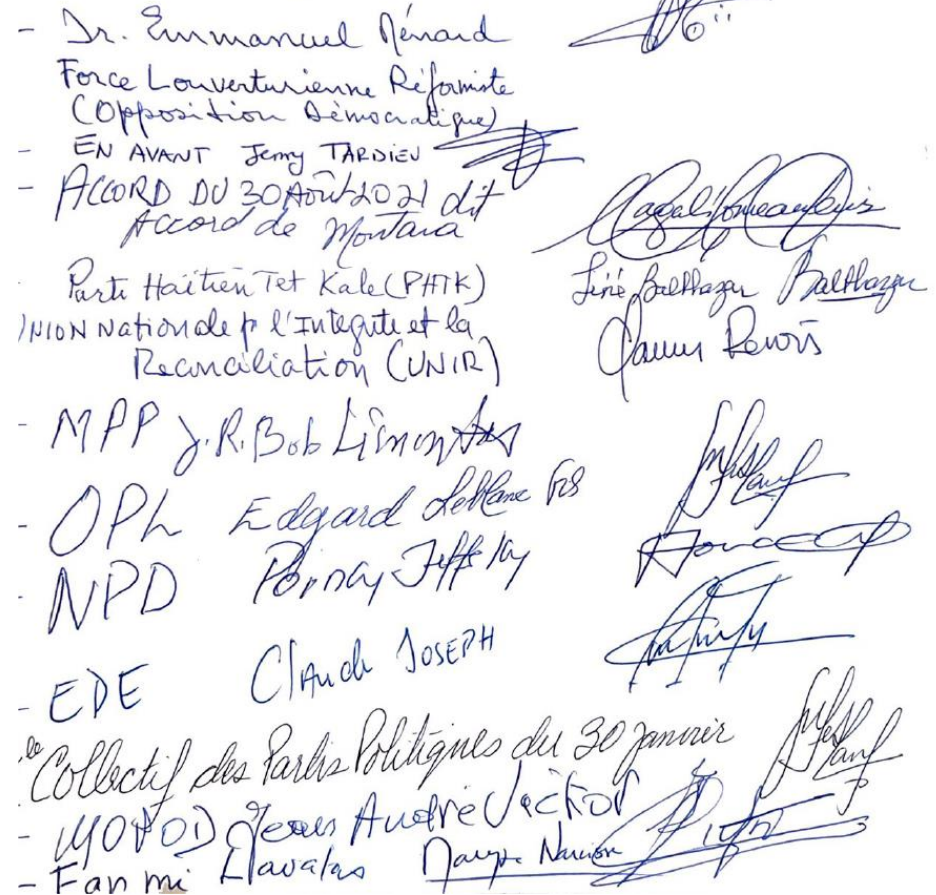 - Dr. Emmanuel Ménard
Force Louverturienne Réformiste
(Opposition Démocratique)
- EN AVANT Jerry TARDIEU
- ACCORD DU 30 Août 2021 dit
Accord de Montana
Parti Haïtien Tet Kale (PHTK)
Liné Balthazar Balthazar
UNION Nationale p l'Integrite et la
Reconciliation (UNIR)
- MPP J.R. Bob
- OPL Edgard Leblanc Fils
- NPD
- EDE Claude JOSEPH
le Collectif des Partis Politiques du 30 Janvier
- MOPOD Jean André Victor
- Fanmi Lavalas